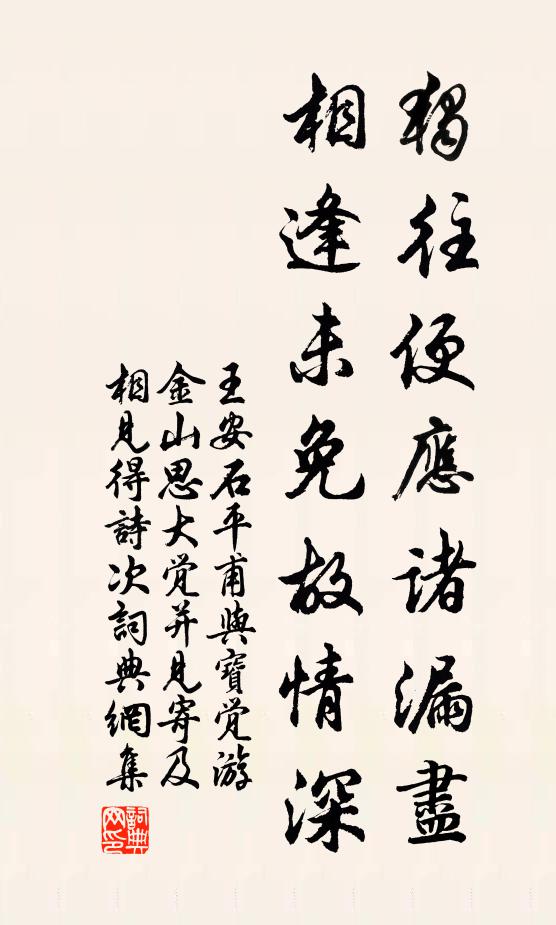 獨往便應諸漏盡
相逢未免故情深
王安石平甫與寶覺游
金山思大覺并見寄及
相見得詩次詞典網集
詞典
网印